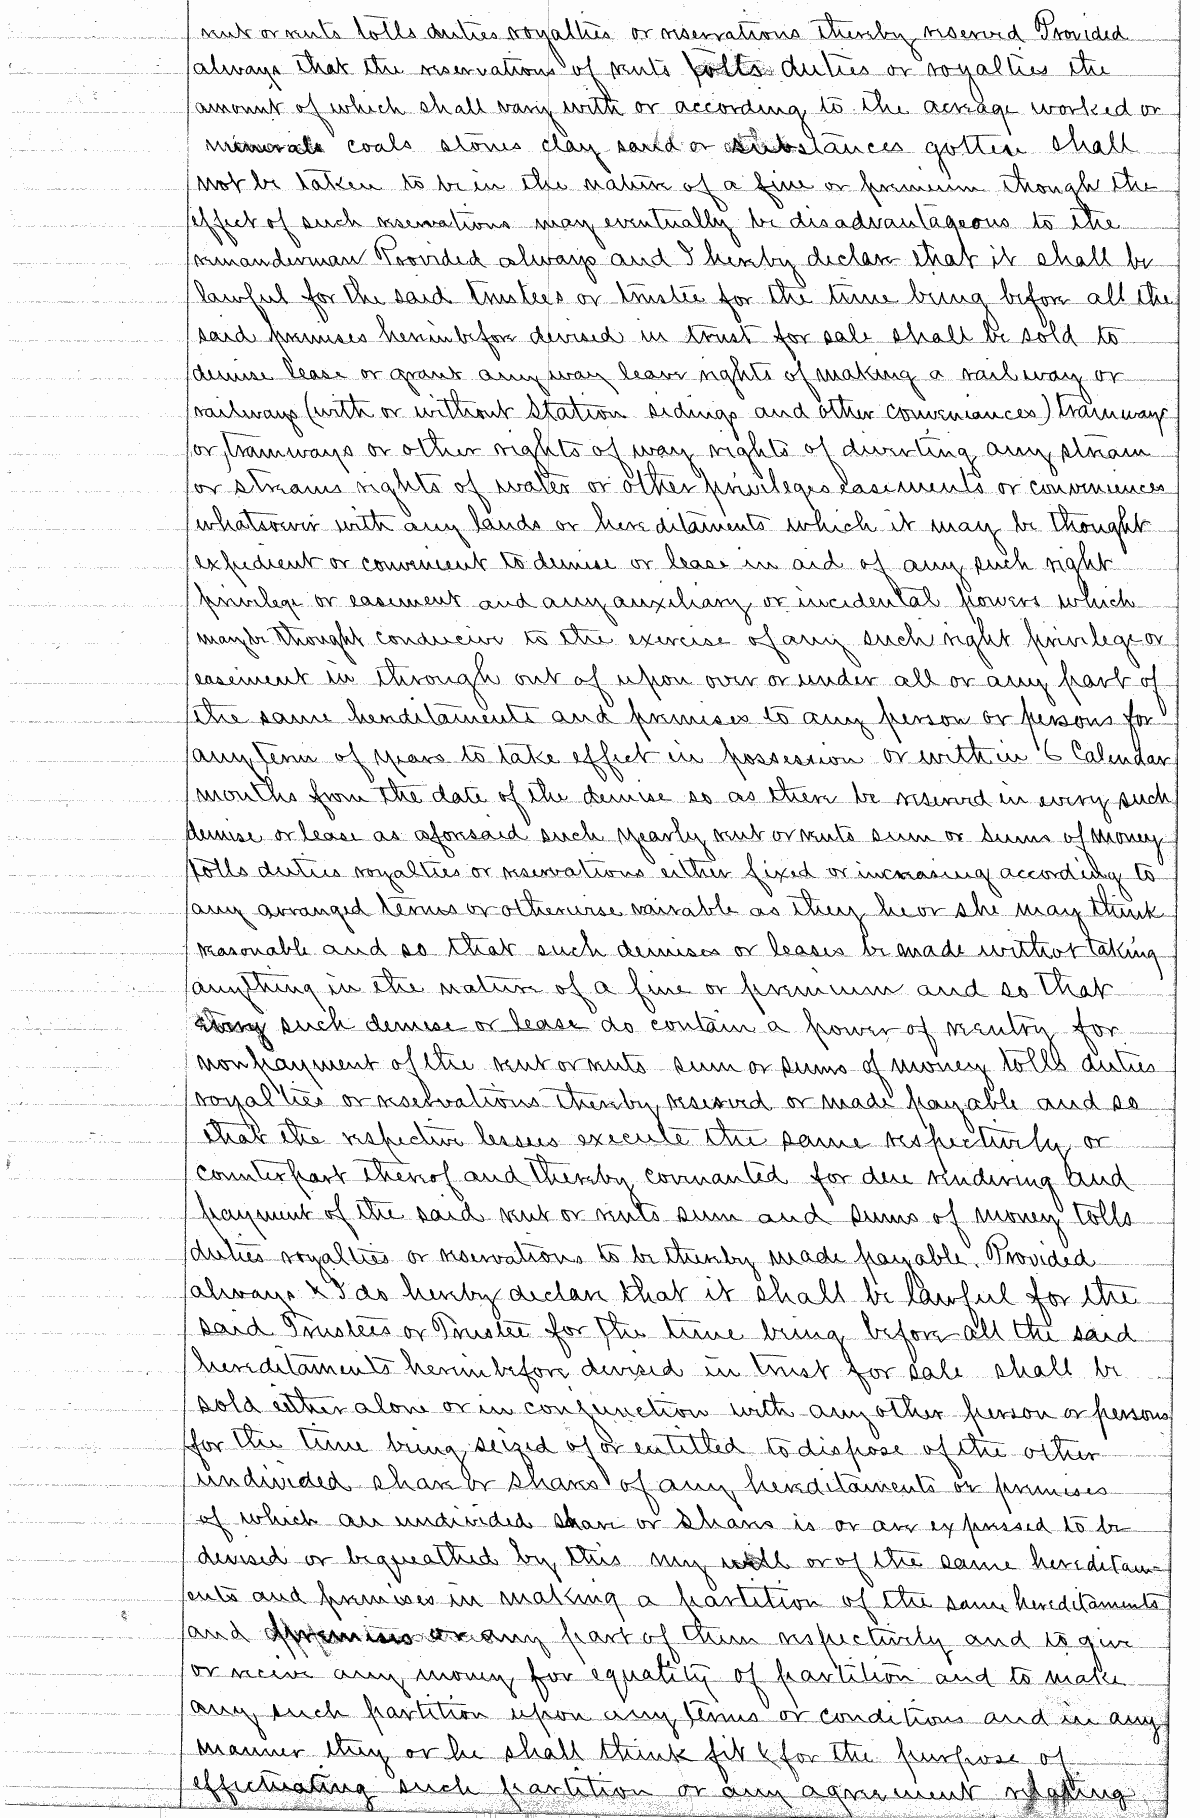 rent or rents tolls duties royalties or reservations thereby reserved Provided
always that the reservations of rents tolls duties or royalties the
amount of which shall vary with or according to the acreage worked or
minerals coals stones clay sand or substances gotten shall
not be taken to be in the nature of a fine or premium though the
effect of such reservations may eventually be disadvantageous to the
remainderman Provided always and I hereby declare that it shall be
lawful for the said trustees or trustee for the time being before all the
said premises hereinbefore devised in trust for sale shall be sold to
demise lease or grant any way leave rights of making a railway or
railways (with or without Station sidings and other conveniances) tramway
or tramways or other rights of way rights of diverting any stream
or streams rights of water or other privileges easements or conveniences
whatsoever with any lands or hereditaments which it may be thought
expedient or convenient to demise or lease in aid of any such right
privilege or easement and any auxiliary or incidental powers which
may be thought conducive to the exercise of any such right privilege or
easement in through out of upon over or under all or any part of
the same hereditaments and premises to any person or persons for
any term of years to take effect in possession or within 6 Calendar
months from the date of the demise so as there be reserved in every such
demise or lease as aforesaid such yearly rent or rents sum or sums of money
tolls duties royalties or reservations either fixed or increasing according to
any arranged terms or otherwise variable as they he or she may think
reasonable and so that such demises or leases be made without taking
anything in the nature of a fine or premium and so that
every such demise or lease do contain a power of reentry for
nonpayment of the rent or rents sum or sums of money tolls duties
royalties or reservations thereby reserved or made payable and so
that the respective lessees execute the same respectively or
counterpart thereof and thereby covenanted for due rendering and
payment of the said rent or rents sum and sums of money tolls
duties royalties or reservations to be thereby made payable. Provided
always & I do hereby declare that it shall be lawful for the
said Trustees or Trustee for the time being before all the said
hereditaments hereinbefore devised in trust for sale shall be
sold either alone or in conjunction with any other person or persons
for the time being seized of or entitled to dispose of the other
undivided share or shares of any hereditaments or premises
of which an undivided share or shares is or are expressed to be
devised or bequeathed by this my will or of the same hereditam-
ents and premises in making a partition of the same hereditaments
and premises or any part of them respectively and to give
or receive any money for equality of partition and to make
any such partition upon any terms or conditions and in any
manner they or he shall think fit & for the purpose of
effectuating such partition or any agreement relating